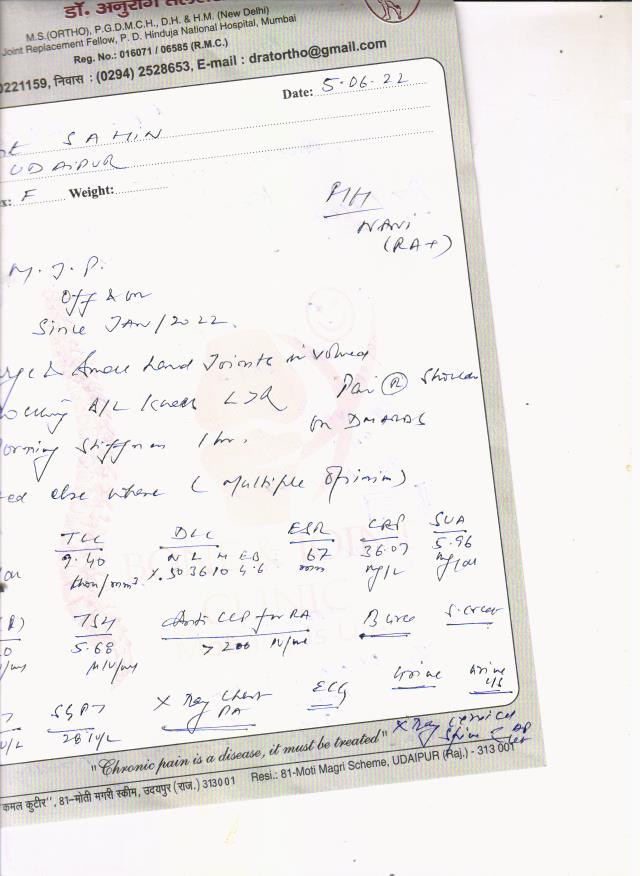 डॉ. अनुराग
M.S.(ORTHO), P.G.D.M.C.H., D.H. & H.M. (New Delhi)
Joint Replacement Fellow, P. D. Hinduja National Hospital, Mumbai
Reg. No.: 016071 / 06585 (R.M.C.)
0221159, निवास : (0294) 2528653, E-mail : dratortho@gmail.com
Date: 5.06.22
SAHIN
UDAIPUR
F Weight:
NANI
(RA+)
M.J.P.
Off & on
Since JAN/2022.
& Small hand Joints involved
B/L Knees L>R Pain (R) Shoulder
on DMARDS
orning Stiffness 1hr.
ed else where (Multiple Opinion)
TLC DLC ESR CRP SUA
9.40 N L M E B 67 36.07 5.96
/mm³ %. 50 36 10 4.6 mm mg/L
TSH Anti CCP for RA B Urea
5.68 > 200
SGPT X Ray Chest ECG Urine Urine
28 IU/L PA
X Ray Cervical
Spine
"Chronic pain is a disease, it must be treated"
कमल कुटीर'', 81–मोती मगरी स्कीम, उदयपुर (राज.) 313001 Resi.: 81-Moti Magri Scheme, UDAIPUR (Raj.) - 313 001